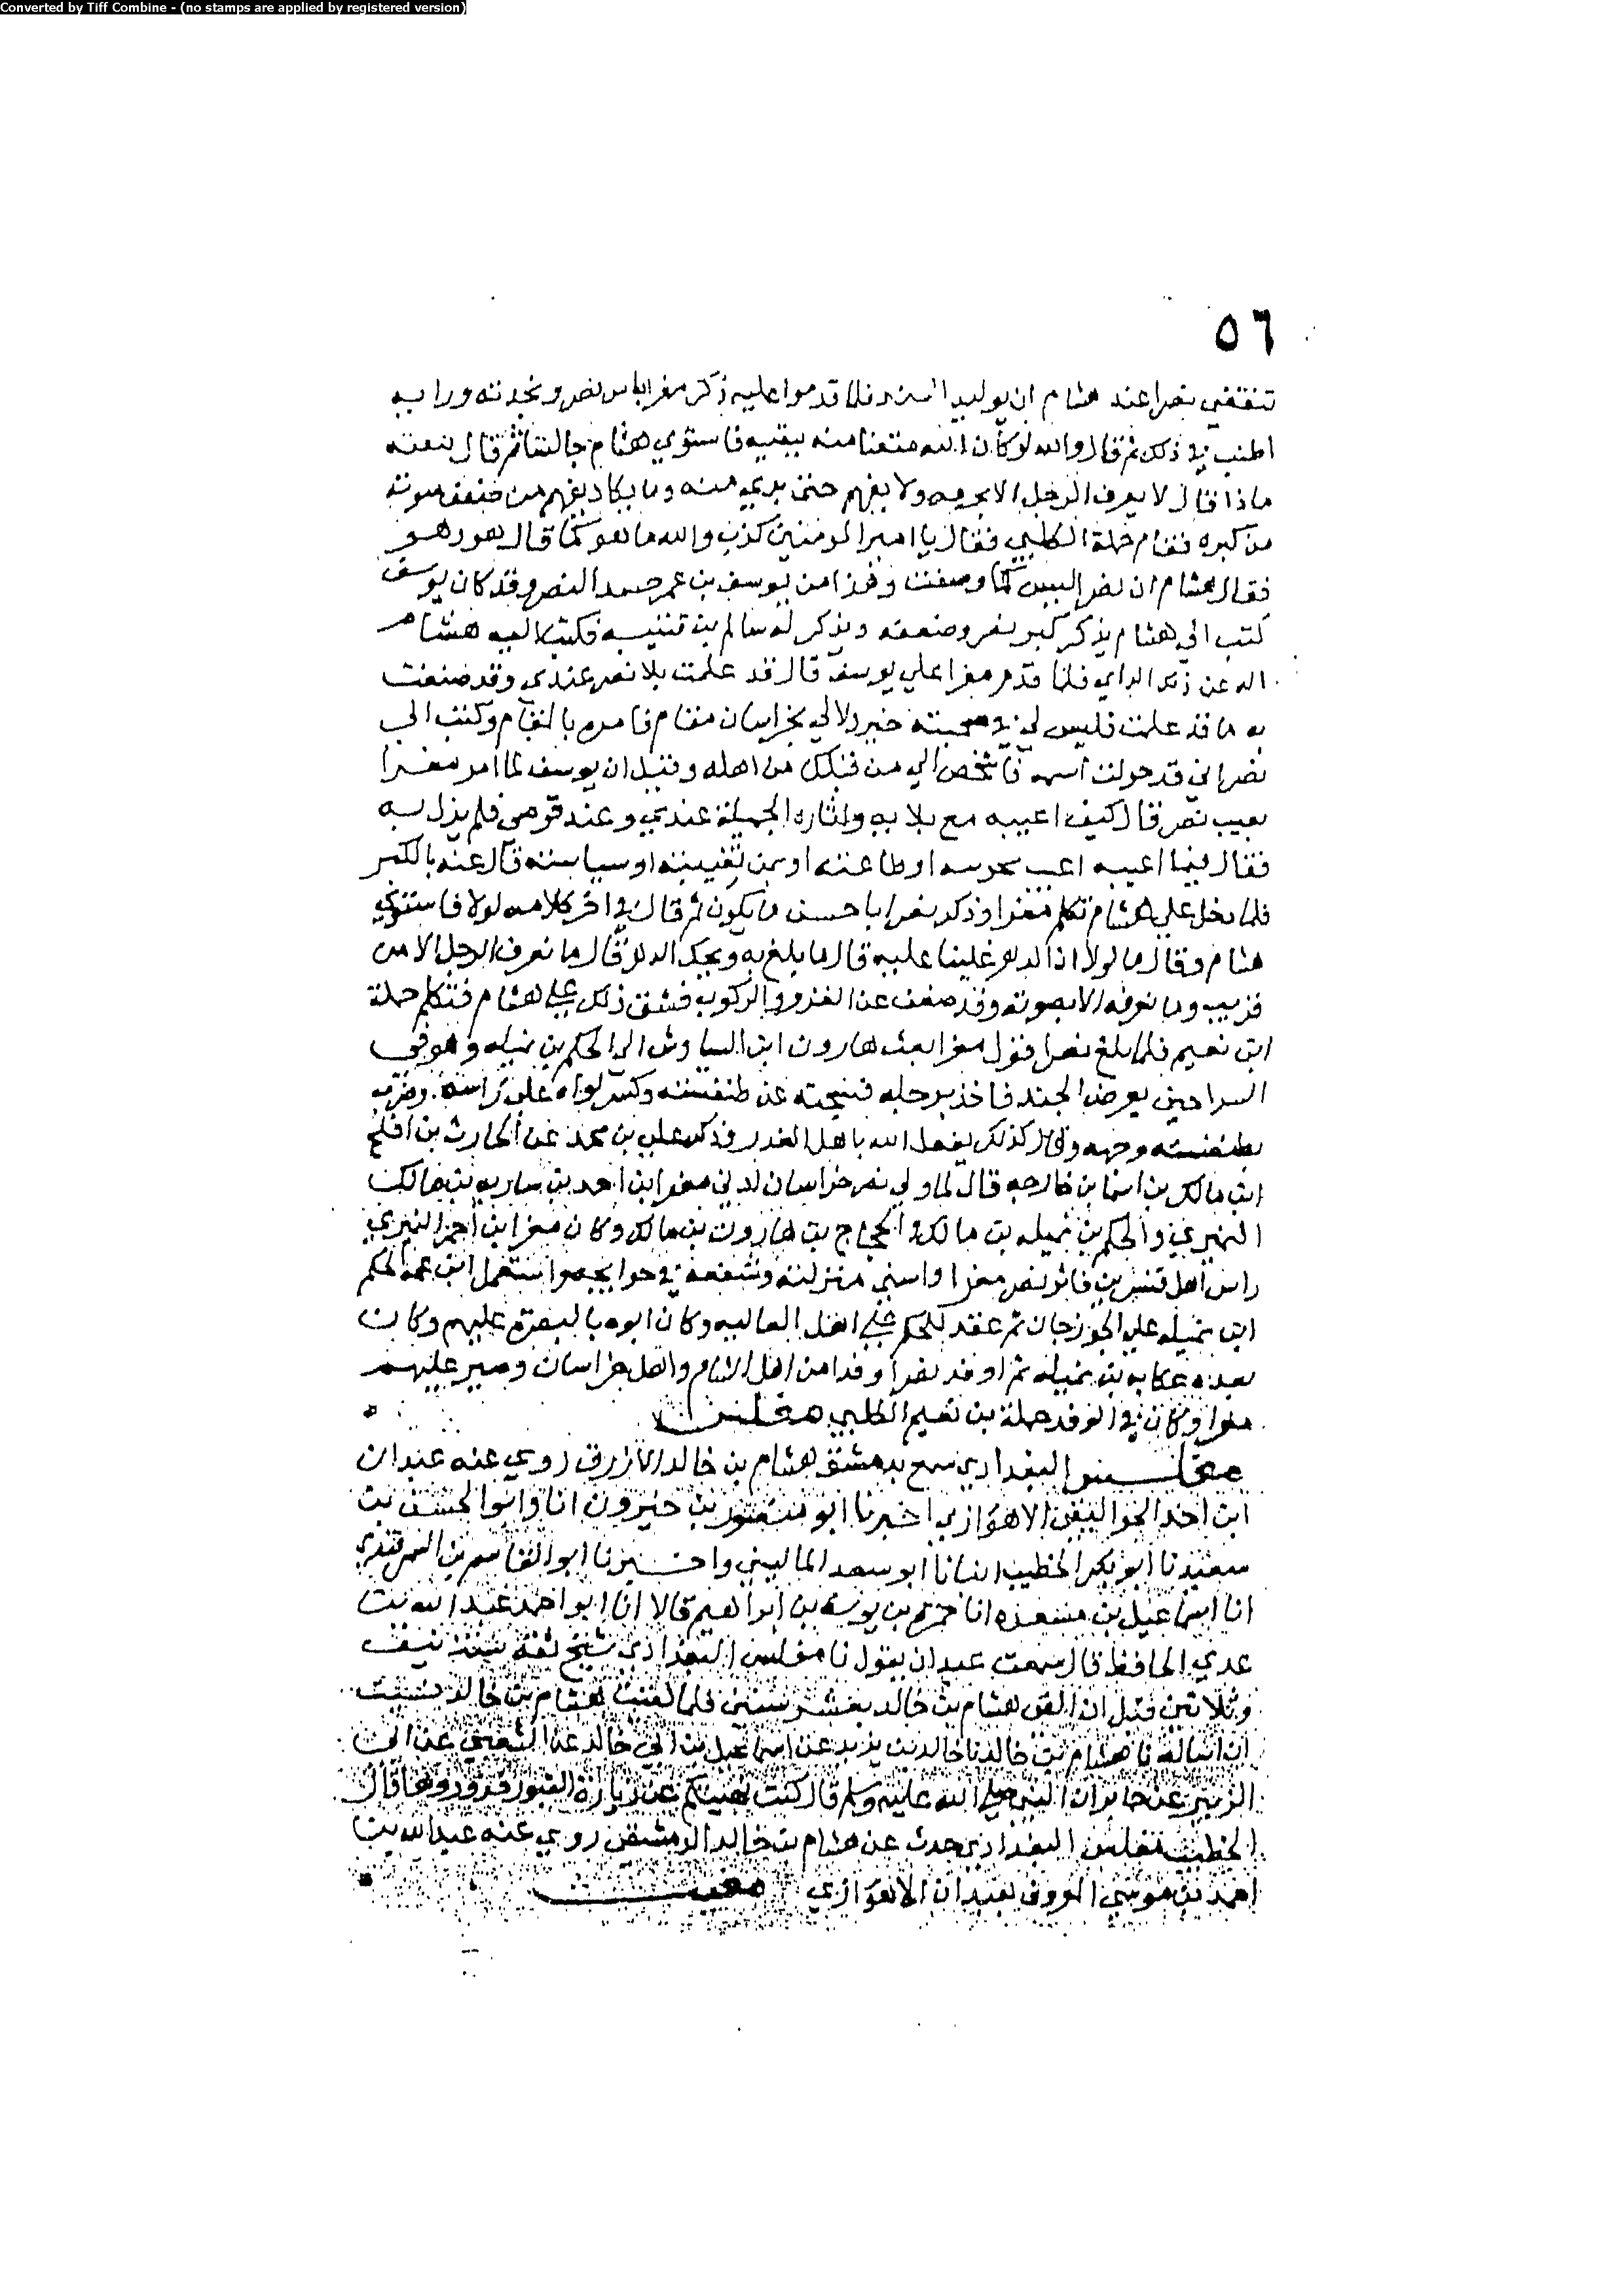 Converted by Tiff Combine - (no stamps are applied by registered version)
٥٦
تنقص نصرا عند هشام ان يوليه السند فلما قدموا عليه ذكر مغرا باس نصر ونجدته ورايه
اطنب في ذلك ثم قال والله لو كان الله متعنا منه ببقية فاستوي هشام جالسا ثم قال ببقية
ماذا قال لا يعرف الرجل الا بجرمه ولا يفهم حتى يدني منه وما يكاد يفهم من ضعف صوته
من كبره فقام حملة الكلبي فقال يا امير المومنين كذب والله ما هو كما قال هو وهو
فقال هشام ان نصر اليس كما وصفت وهذا من يوسف بن عمر حسد النصر وقد كان يوسف
كتب الي هشام يذكر كبر نصر وضعفه ويذكر له سالم بن قتيبة فكتب اليه هشام
اله عن ذكر فلما قدم مغرا علي يوسف قال قد علمت بلا نصر عندي وقد صنعت
به ما قد علمت فليس لي في صحبته خير ولا لي بخراسان مقام فامره بالمقام وكتب الي
نصر اني قد حولت اسمه فاشخص الي من قبلك من اهله وقيل ان يوسف لما امر مغرا
بعيب نصر قال كيف اعيبه مع بلايه واثاره الجميلة عندي وعند قومي فلم يزل به
فقال فبما اعيبه اعيب تجربته او طاعته او يمن نقيبته او سياسته قال عبه بالكبر
فلما دخل علي هشام تكلم مغرا وذكر نصرا باحسن ما يكون ثم قال في اخر كلامه لولا فاستوي
هشام وقال ما لولا ان الدهر غلبنا عليه قال ما بلغ به ويحك الدهر قال ما نعرف الرجل الا من
قريب وما نعرفه الا بصوته وقد ضعف عن الغزو والركوب فشق ذلك علي هشام فتكلم حملة
ابن نعيم فلما بلغ نصرا قول مغرا بعث هارون ابن السياوش الي الحكم بن نميله وهو في
السراجين يعرض الجند فاخذ برجله فسحبه عن طنفسته وكسر لواه علي راسه وضرب
بطنفسته وجهه وقال كذلك يفعل الله باهل الغدر وذكر علي بن محمد عن الحارث بن افلح
ابن مالك بن اسما بن خارجه قال لما ولي نصر خراسان ادني مغرا ابن احمد بن ساريه بن مالك
النميري والحكم بن نميله بن مالك والحجاج بن هارون بن مالك وكان مغرا ابن احمر النميري
راس اهل قنسرين فاثر نصر مغرا واسني منزلته وشفعه في حوايجه واستعمل ابن عمه الحكم
ابن نميله علي الجوزجان ثم عقد للحكم علي اهل العاليه وكان ابوه بالبصرة عليهم وكان
بعده عكابه بن نميله ثم اوفد نصرا وفدا من اهل الشام واهل خراسان وصير عليهم
مغرا وكان في الوفد حملة بن نعيم الكلبي مغلس
مغلس البغدادي سمع بدمشق هشام بن خالد الازرق روي عنه عبدان
ابن احمد الجواليقي الاهوازي اخبرنا ابو منصور بن خيرون انا وابو الحسن بن
سعيد نا ابو بكر الخطيب انبانا ابو سعد الماليني واخبرنا ابو القاسم بن السمرقندي
انا اسماعيل بن مسعده انا حمزه بن يوسف بن ابراهيم قالا انا ابو احمد عبد الله بن
عدي الحافظ قال سمعت عبدان يقول نا مغلس البغدادي شيخ ثقة سنة نيف
وثلاثين قبل ان القي هشام بن خالد بعشر سنين فلما لقيت هشام بن خالد نسيت
ان اساله نا هشام بن خالد نا خالد بن يزيد عن اسماعيل بن ابي خالد عن الشعبي عن ابي
الزبير عن جابر ان النبي صلي الله عليه وسلم قال كنت نهيتكم عن زيارة القبور فزوروها قال
الخطيب مغلس البغدادي حدث عن هشام بن خالد الدمشقي روي عنه عبد الله بن
احمد بن موسي المعروف بعبدان الاهوازي مغيث